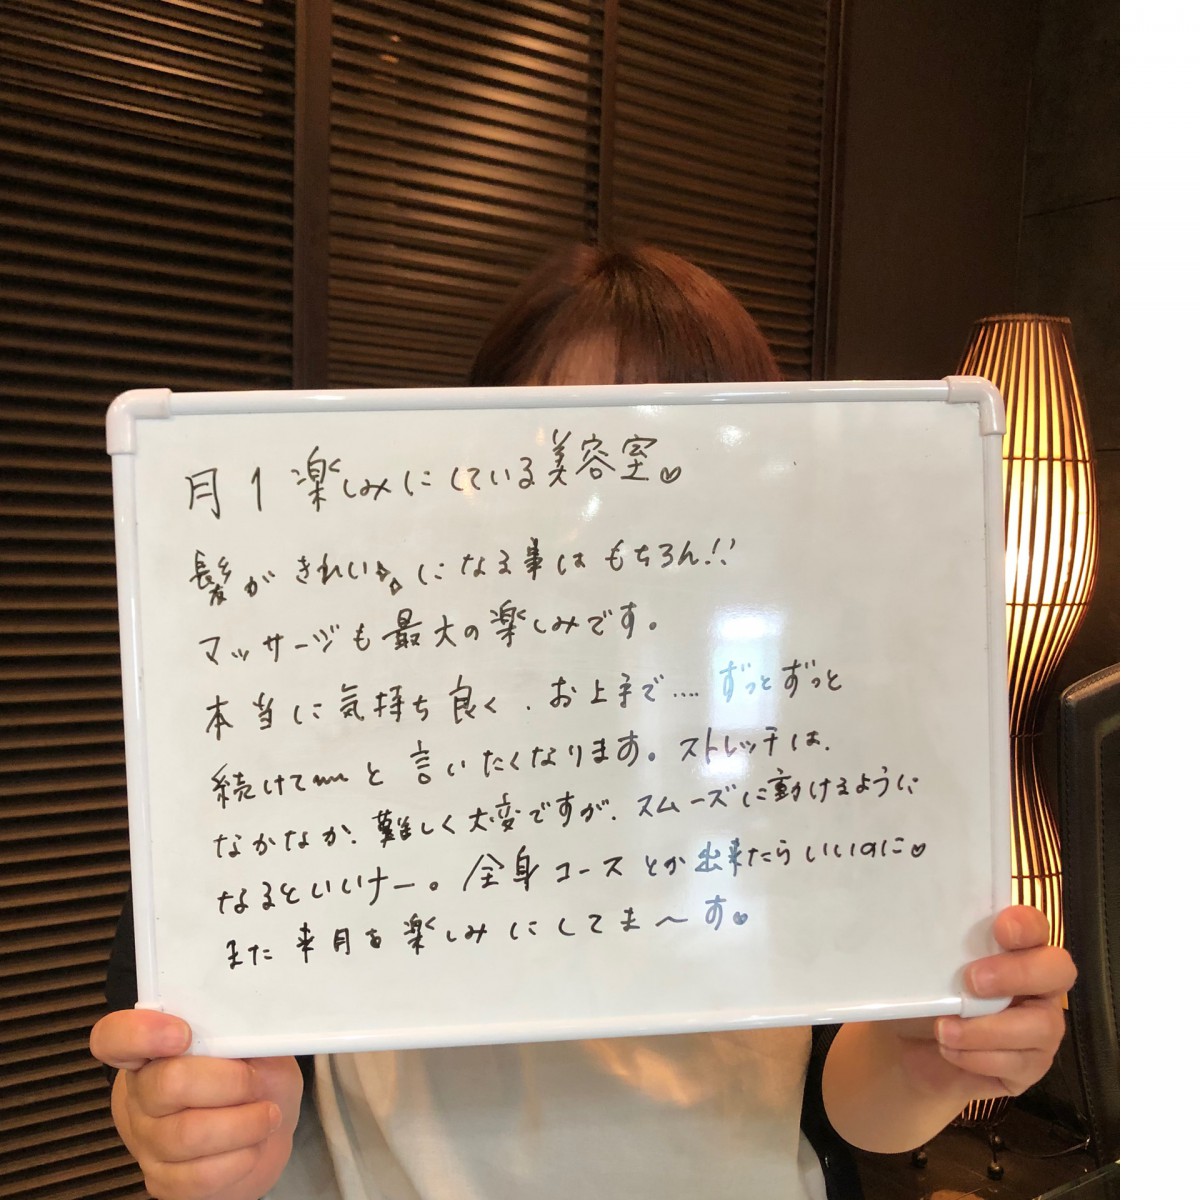 月1楽しみにしている美容室♡
髪がきれい✨になる事はもちろん!!
マッサージも最大の楽しみです。
本当に気持ち良く、お上手で....ずっとずっと
続けて〰と言いたくなります。ストレッチは、
なかなか、難しく大変ですが、スムーズに動けるように
なるといいナー。全身コースとか出来たらいいのに♡
また来月を楽しみにしてま〜す♡